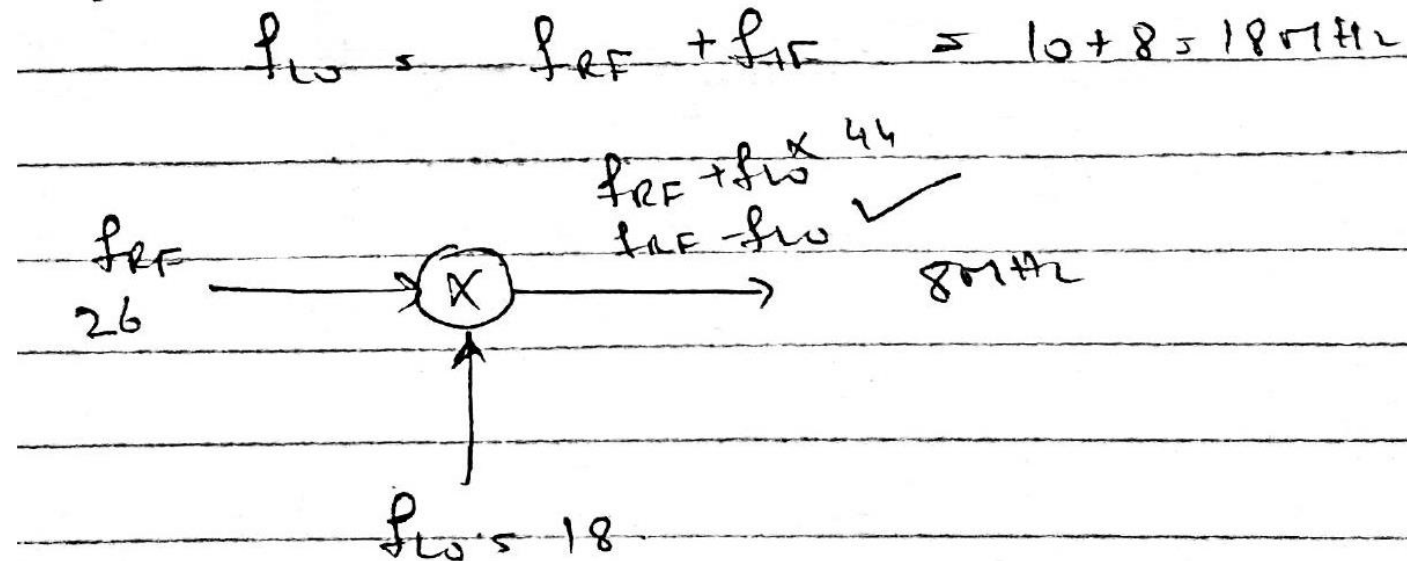 f_LO = f_RF + f_IF = 10 + 8 = 18 MHz
f_RF + f_LO × 44
f_RF - f_LO ✓
f_RF
26
X
8 MHz
f_LO = 18